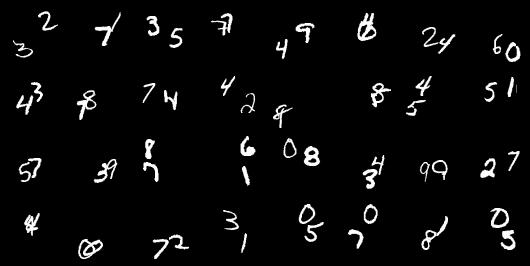 3 2 7 1 3 5 7 7 4 9 2 4 6 0
4 3 9 8 7 4 4 2 8 5 4 5 1
5 7 3 9 8 7 6 1 0 8 3 4 9 9 2 7
7 2 3 1 0 5 7 0 8 1 0 5